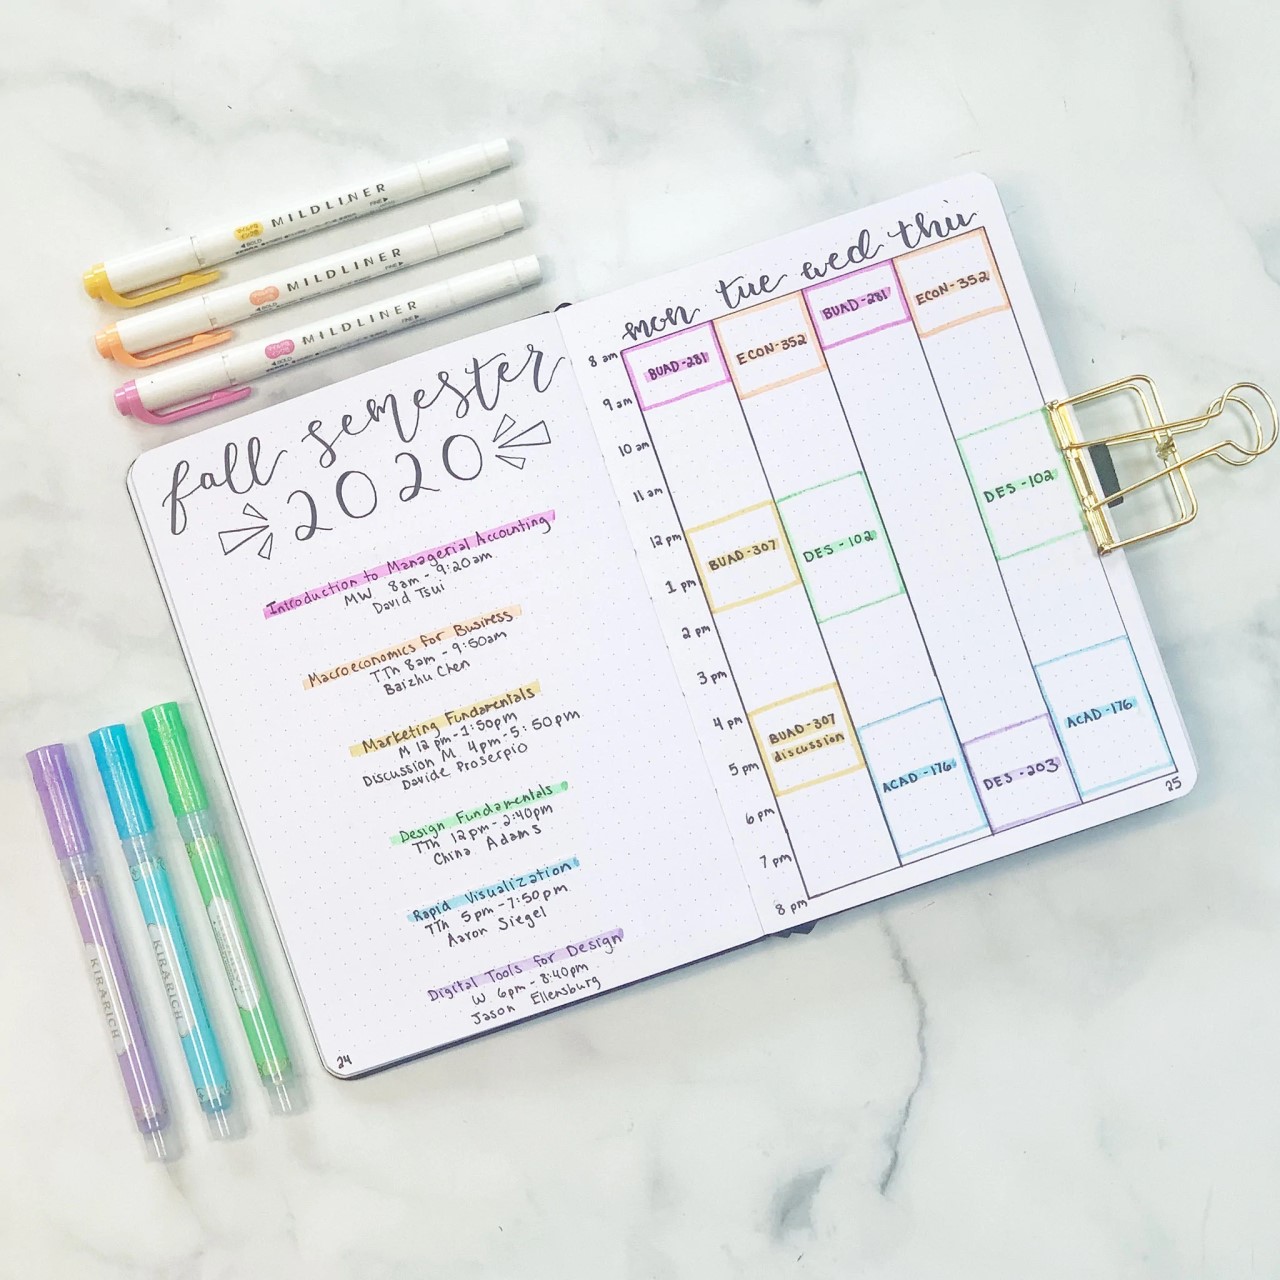 MILDLINER
BOLD
FINE
MILDLINER
BOLD
FINE
MILDLINER
BOLD
FINE
KIRARICH
KIRARICH
fall semester
2020
Introduction to Managerial Accounting
MW 8am - 9:20am
David Tsui
Macroeconomics for Business
TTh 8am - 9:50am
Baizhu Chen
Marketing Fundamentals
M 12pm - 1:50pm
Discussion M 4pm - 5:50pm
Davide Proserpio
Design Fundamentals
TTh 12pm - 2:40pm
China Adams
Rapid Visualization
TTh 5pm - 7:50pm
Aaron Siegel
Digital Tools for Design
W 6pm - 8:40pm
Jason Ellensburg
24
mon tue wed thu
8 am
9 am
10 am
11 am
12 pm
1 pm
2 pm
3 pm
4 pm
5 pm
6 pm
7 pm
8 pm
BUAD-281
BUAD-307
BUAD-307
discussion
ECON-352
DES-102
ACAD-176
BUAD-281
DES-203
ECON-352
DES-102
ACAD-176
25